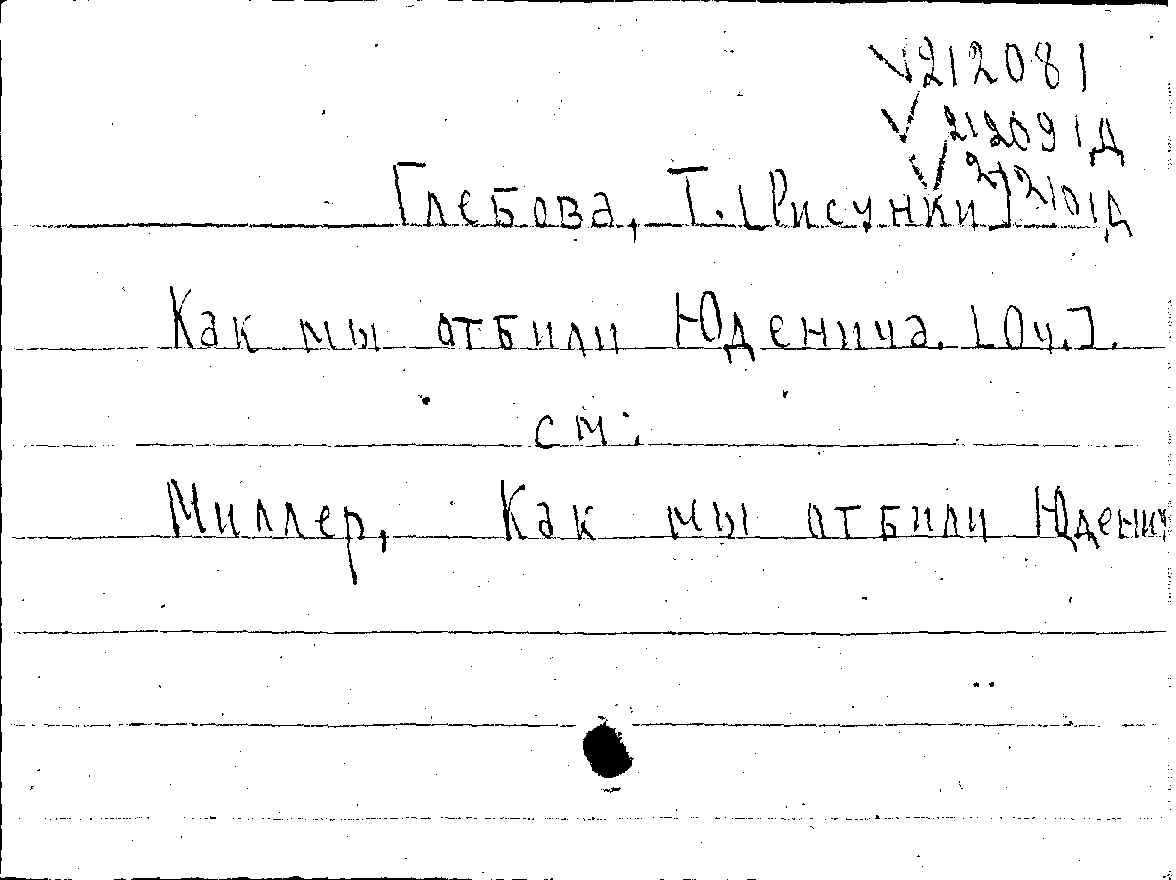 √212081
√212091Д
√212101Д
Глебова, Т. [Рисунки]
Как мы отбили Юденича. [Оч.].
см:
Миллер, Как мы отбили Юденич